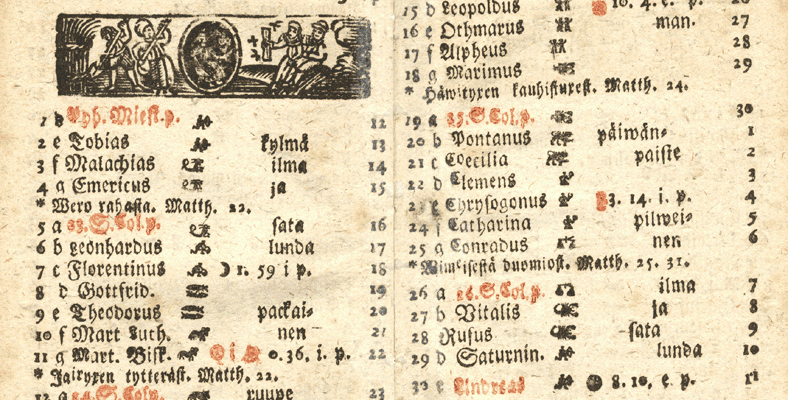 1 d Pyh. Miest. p. 12
2 e Tobias kylmä 13
3 f Malachias ilma 14
4 g Emericus ja 15
* Wero rahasta. Matth. 22.
5 a 23. S. Col. p. sata 16
6 b Leonhardus lunda 17
7 c Florentinus 1. 59 i p. 18
8 d Gottfrid. 19
9 e Theodorus packai- 20
10 f Mart Luth. nen 21
11 g Mart. Bisk. 0. 36. i. p. 22
* Jairyxen tytteräst. Matth. 22.
12 a 24. S. Colp. ruupe 23
15 d Leopoldus 10. 4. e. p. 26
16 e Othmarus man. 27
17 f Alpheus 28
18 g Maximus 29
* Häwityxen kauhistuxest. Matth. 24.
19 a 25. S. Col. p. 30
20 b Pontanus päiwän- 1
21 c Coecilia paiste 2
22 d Clemens 3
23 e Chrysogonus 3. 14. i. p. 4
24 f Catharina pilwei- 5
25 g Conradus nen 6
* Wimeisestä duomiost. Matth. 25. 31.
26 a 26. S. Col. p. ilma 7
27 b Vitalis ja 8
28 Rufus sata 9
29 d Saturnin. lunda 10
30 e Andreas 8. 10. e. p. 11